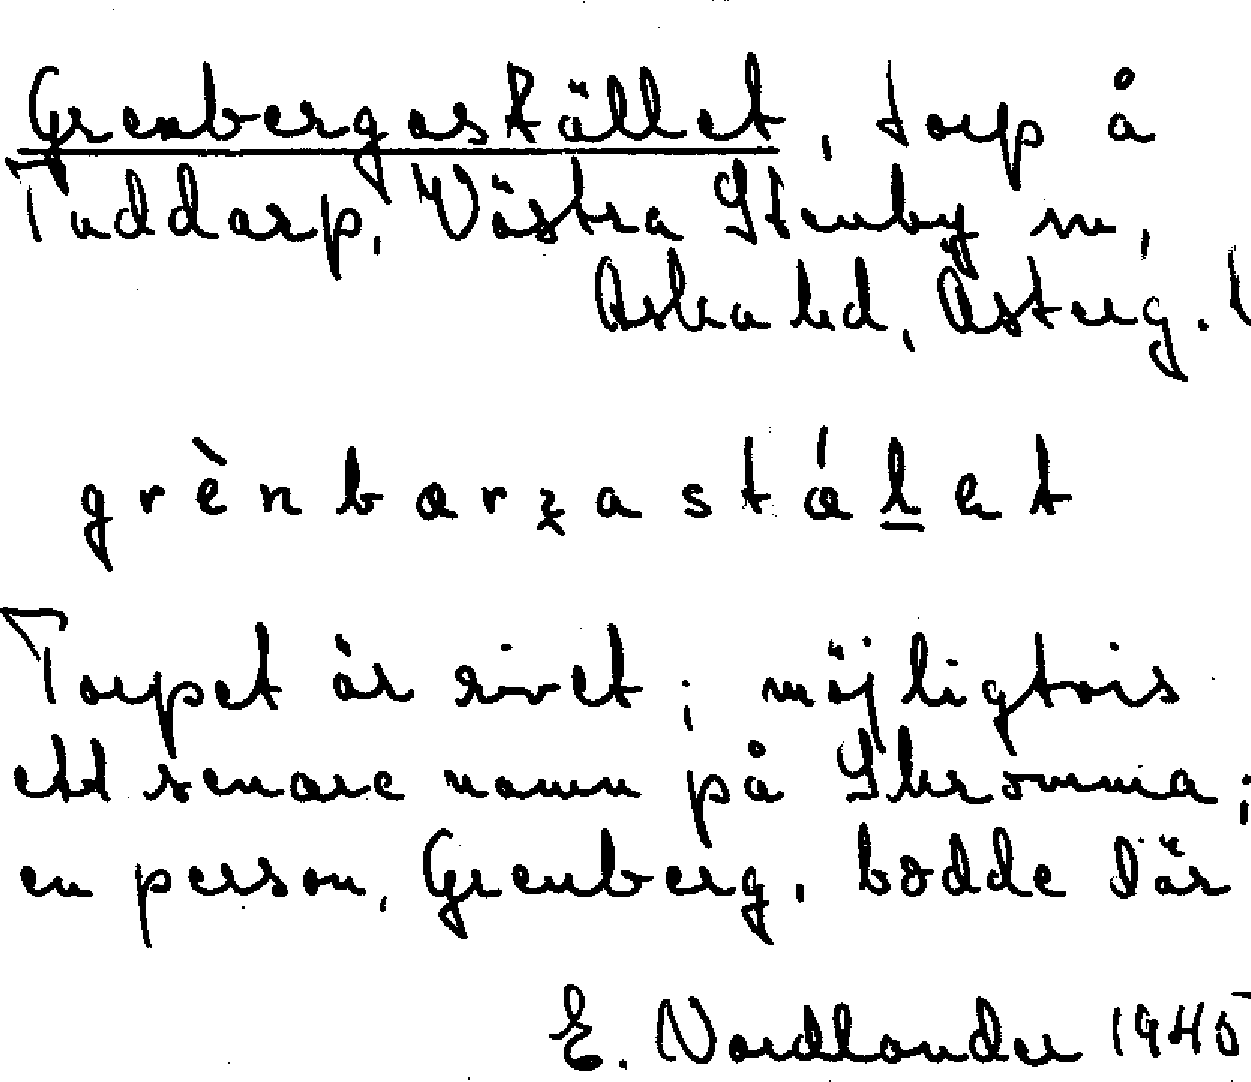 Grenbergastället, torp å
Taddarp, Västra Stenby sn,
Aska hd, Österg. l
grènbarzastálet
Torpet är rivet; möjligtvis
ett senare namn på Skromma;
en person, Grenberg, bodde där
E. Nordlander 1945